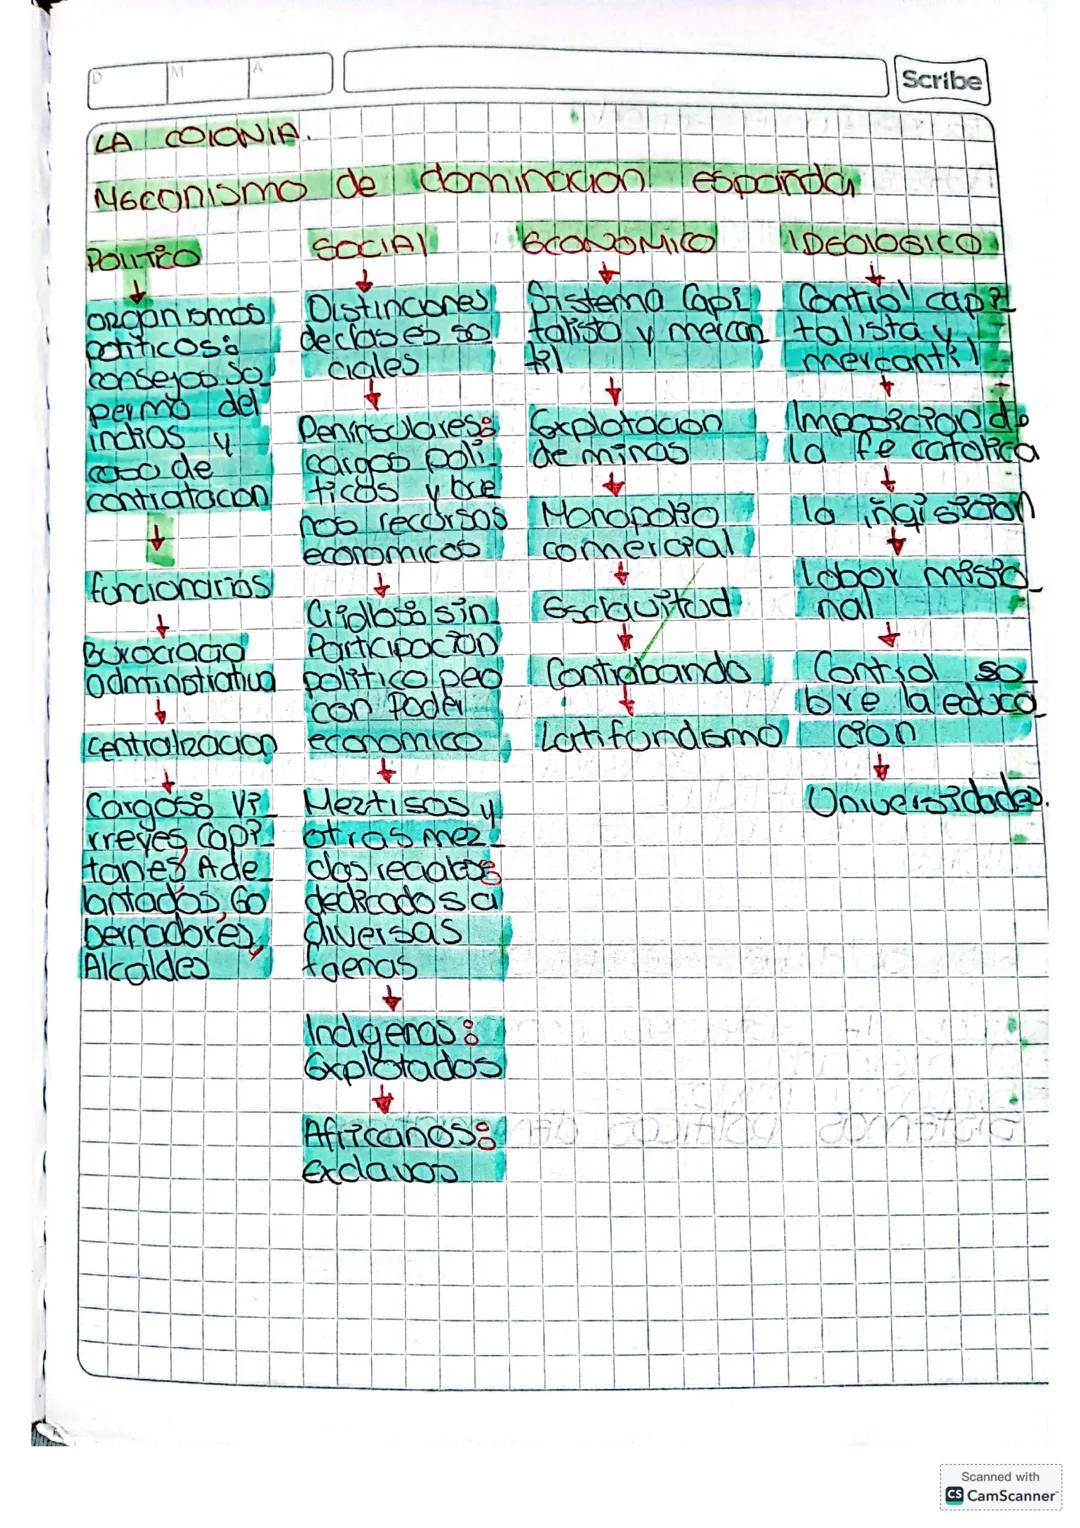 D M A
Scribe
LA COLONIA.
Mecanismo de dominacion española
POLITICO
organismos
politicos:
consejos so
permo del
indias y
casa de
contratacion
funcionarios
Burocracia
administrativa
centralizacion
Cargos: Vi
rreyes, Capi-
tanes, Ade-
lantados, Go
bernadores,
Alcaldes
SOCIAL
Distinciones
declases so
ciales
Peninsulares:
cargos poli-
ticos y bue
nos recursos
economicos
Criollos: sin
Participacion
politico peo
con Poder
economico
Meztisos y
otras mez-
clas reciales:
dedicados a
diversas
faenas
Indigenas:
Explotados
Africanos:
exclavos
ECONOMICO
Sistema Capi
talista y mercan
til
Explotacion
de minas
Monopolio
comercial
Esclavitud
Contrabando
Latifundismo
IDEOLOGICO
Control capi
talista y
mercantil
Imposicion de
la fe catolica
la iñqisicion
labor misio_
nal
Control so_
bre la educa_
cion
Universidades.
Scanned with
CS CamScanner